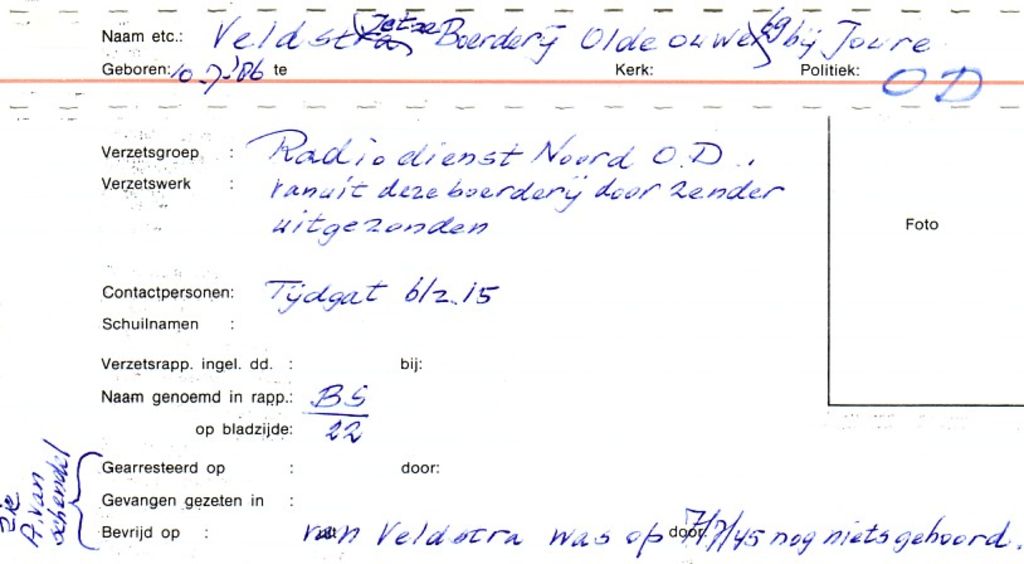 Naam etc.: Veldstra Jetze Boerderij Oldeouwer bij Joure
Geboren: 10-7-'06 te Kerk: Politiek: OD
Verzetsgroep : Radiodienst Noord O.D.
Verzetswerk : vanuit deze boerderij door zender
uitgezonden
Foto
Contactpersonen: Tijdgat blz. 15
Schuilnamen :
Verzetsrapp. ingel. dd. : bij:
Naam genoemd in rapp.: BS
op bladzijde: 22
zie A. van Schendel
Gearresteerd op : door:
Gevangen gezeten in :
Bevrijd op : van Veldstra was op door: 7/7/45 nog niets gehoord.